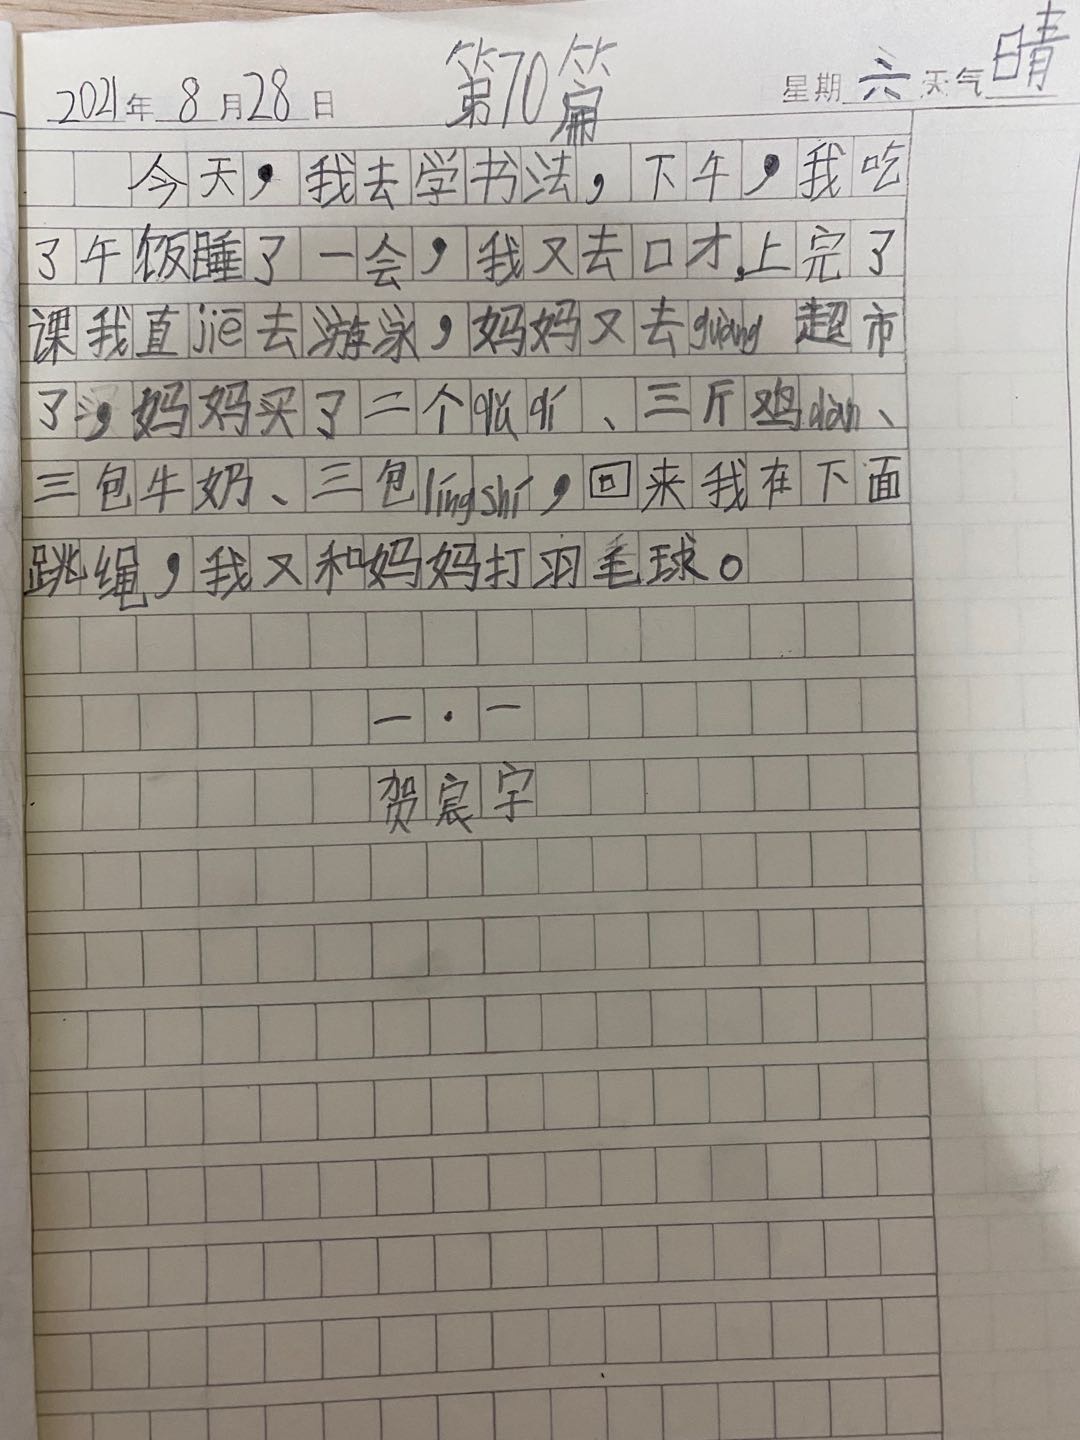 2021年 8月28日 第70篇 星期 六 天气 晴
今天，我去学书法，下午，我吃
了午饭睡了一会，我又去口才，上完了
课我直jiē去游泳，妈妈又去guàng超市
了，妈妈买了二个qū qí、三斤鸡dàn、
三包牛奶、三包língshí，回来我在下面
跳绳，我又和妈妈打羽毛球。
一·一
贺宸宇